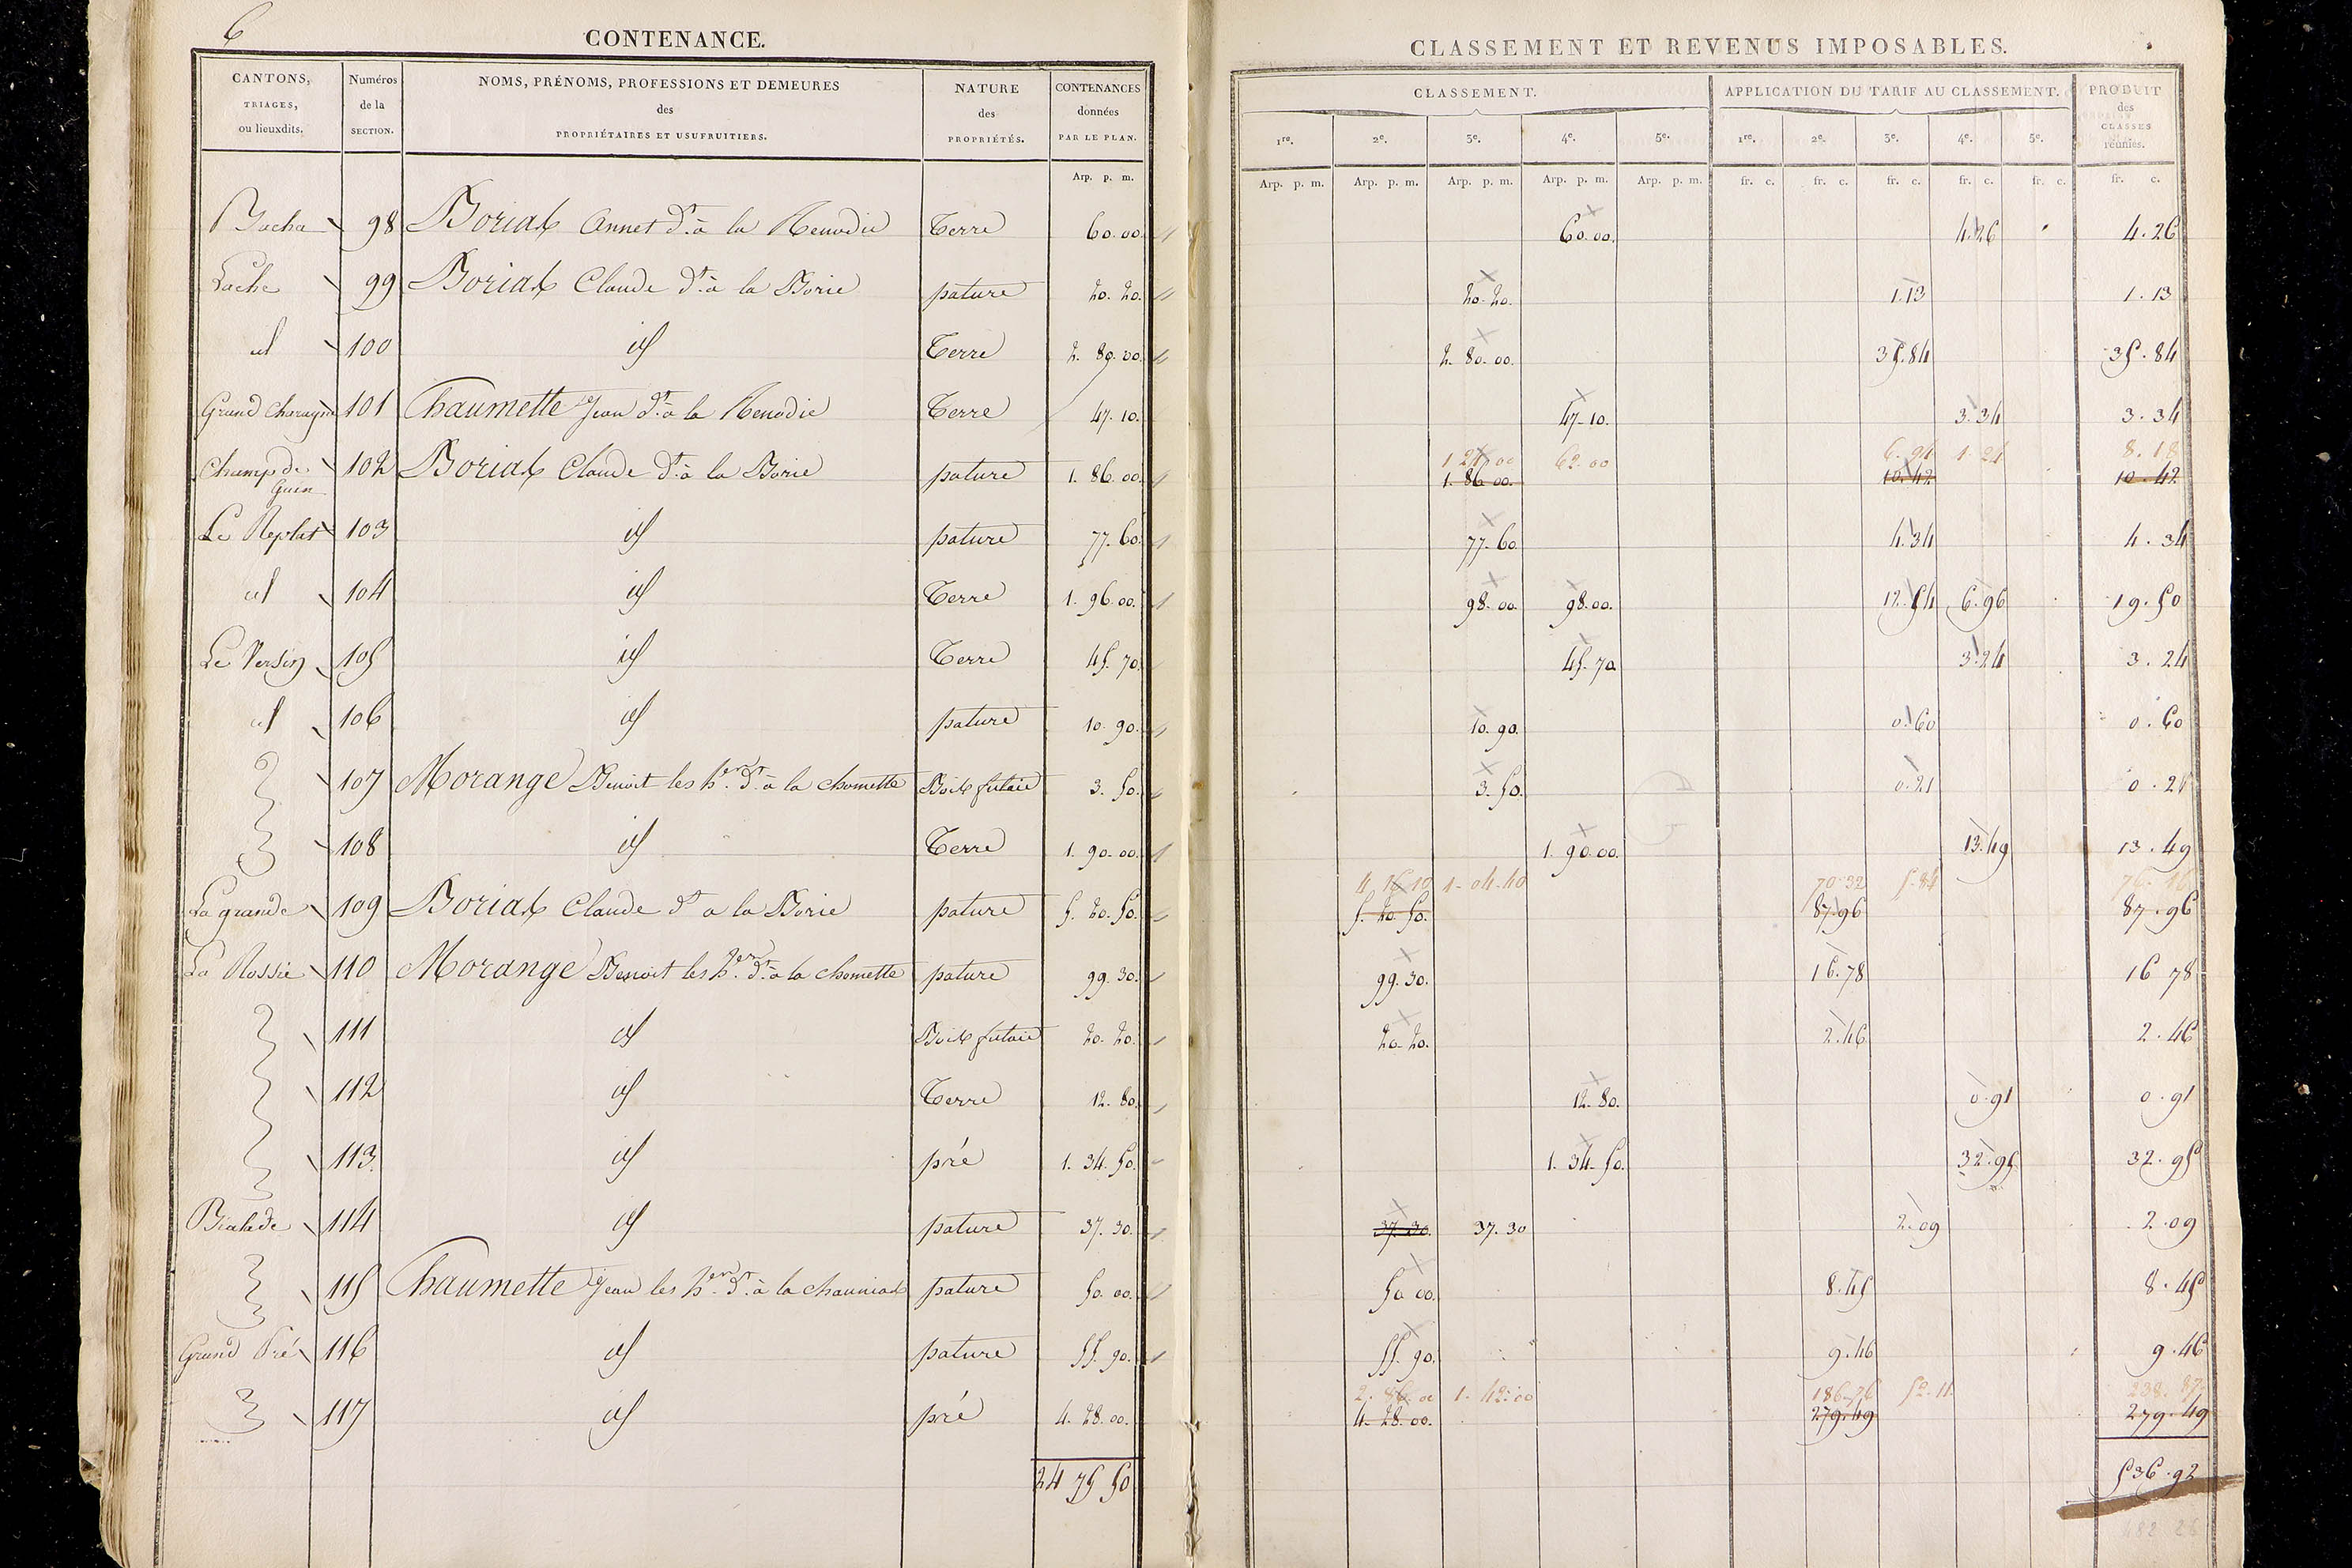 6
CONTENANCE.
CANTONS, TRIAGES, ou lieuxdits. Numéros de la SECTION. NOMS, PRÉNOMS, PROFESSIONS ET DEMEURES des PROPRIÉTAIRES ET USUFRUITIERS. NATURE des PROPRIÉTÉS. CONTENANCES données PAR LE PLAN.
Arp. p. m.
CLASSEMENT ET REVENUS IMPOSABLES.
CLASSEMENT. APPLICATION DU TARIF AU CLASSEMENT. PRODUIT des CLASSES réunies.
1re. 2e. 3e. 4e. 5e. 1re. 2e. 3e. 4e. 5e.
Arp. p. m. Arp. p. m. Arp. p. m. Arp. p. m. Arp. p. m. fr. c. fr. c. fr. c. fr. c. fr. c. fr. c.
98 Boriax Annet dt. à la Renodie Terre 60.00. 60.00. 4.26 4.26
99 Boriax Claude dt. à la Borie pature 20.20. 20.20. 1.13 1.13
id 100 id Terre 2.80.00. 2.80.00. 35.84 35.84
101 Chaumette Jean dt. à la Renodie Terre 47.10. 47.10. 3.34 3.34
1 24 00 62.00 6.94 1.24 8.18
Champ de 102 Boriax Claude dt. à la Borie pature 1.86.00. 1.86.00. 10.42 10.42
Le Replat 103 id pature 77.60. 77.60 4.34 4.34
id 104 id Terre 1.96.00. 98.00. 98.00. 12.54 6.96 19.50
Le Versin 105 id Terre 45.70. 45.70 3.24 3.24
id 106 id pature 10.90. 10.90. 0.60 0.60
107 Morange Benoit les her. dt. à la chomette Boix futaie 3.50. 3.50. 0.21 0.21
108 id Terre 1.90.00. 1.90.00. 13.49 13.49
4.16.10 1.04.40 70.32 5.84 76.16
La grande 109 Boriax Claude dt. a la Borie pature 5.20.50. 5.20.50. 87.96 87.96
La Rossie 110 Morange Benoit les her. dt. à la chomette pature 99.30. 99.30. 16.78 16.78
111 id Boix futaie 20.20. 20.20. 2.46 2.46
112 id Terre 12.80. 12.80. 0.91 0.91
113. id pré 1.34.50. 1.34.50. 32.95 32.95
114 id pature 37.30. 37.30. 37.30 2.09 2.09
115 Chaumette Jean les her. dt. à la chauniax pature 50.00. 50.00. 8.45 8.45
Grand Pré 116 id pature 55.90. 55.90. 9.46 9.46
2.86.00 1.42.00 186.76 52.11 238.87
117 id pré 4.28.00. 4.28.00. 279.49 279.49
24 75 50 536.92
482 26